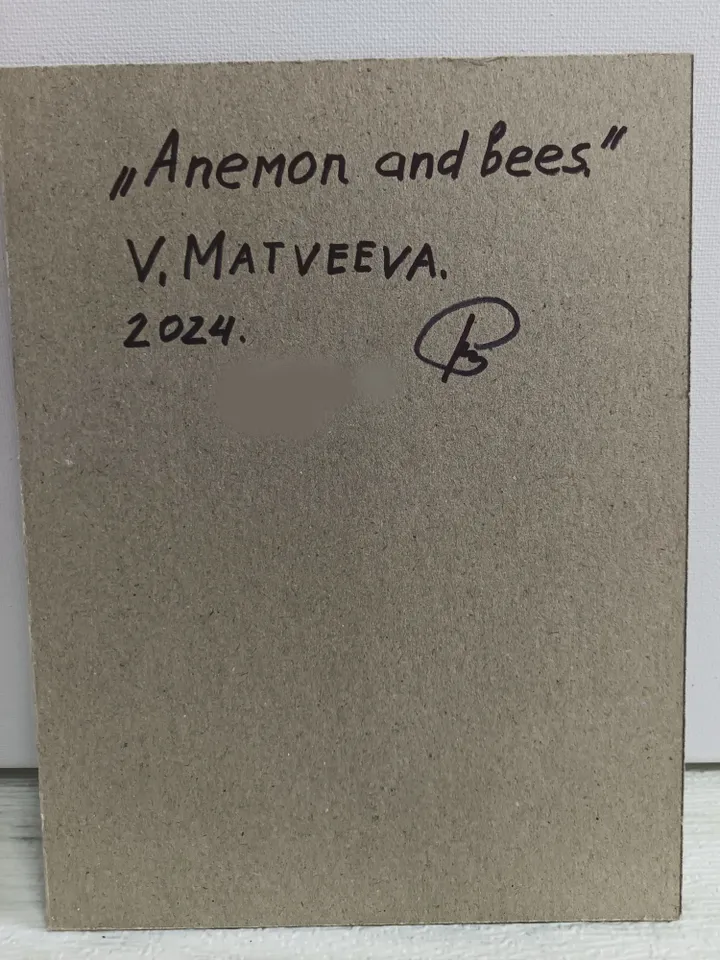 „Anemon and bees."
V. MATVEEVA.
2024.